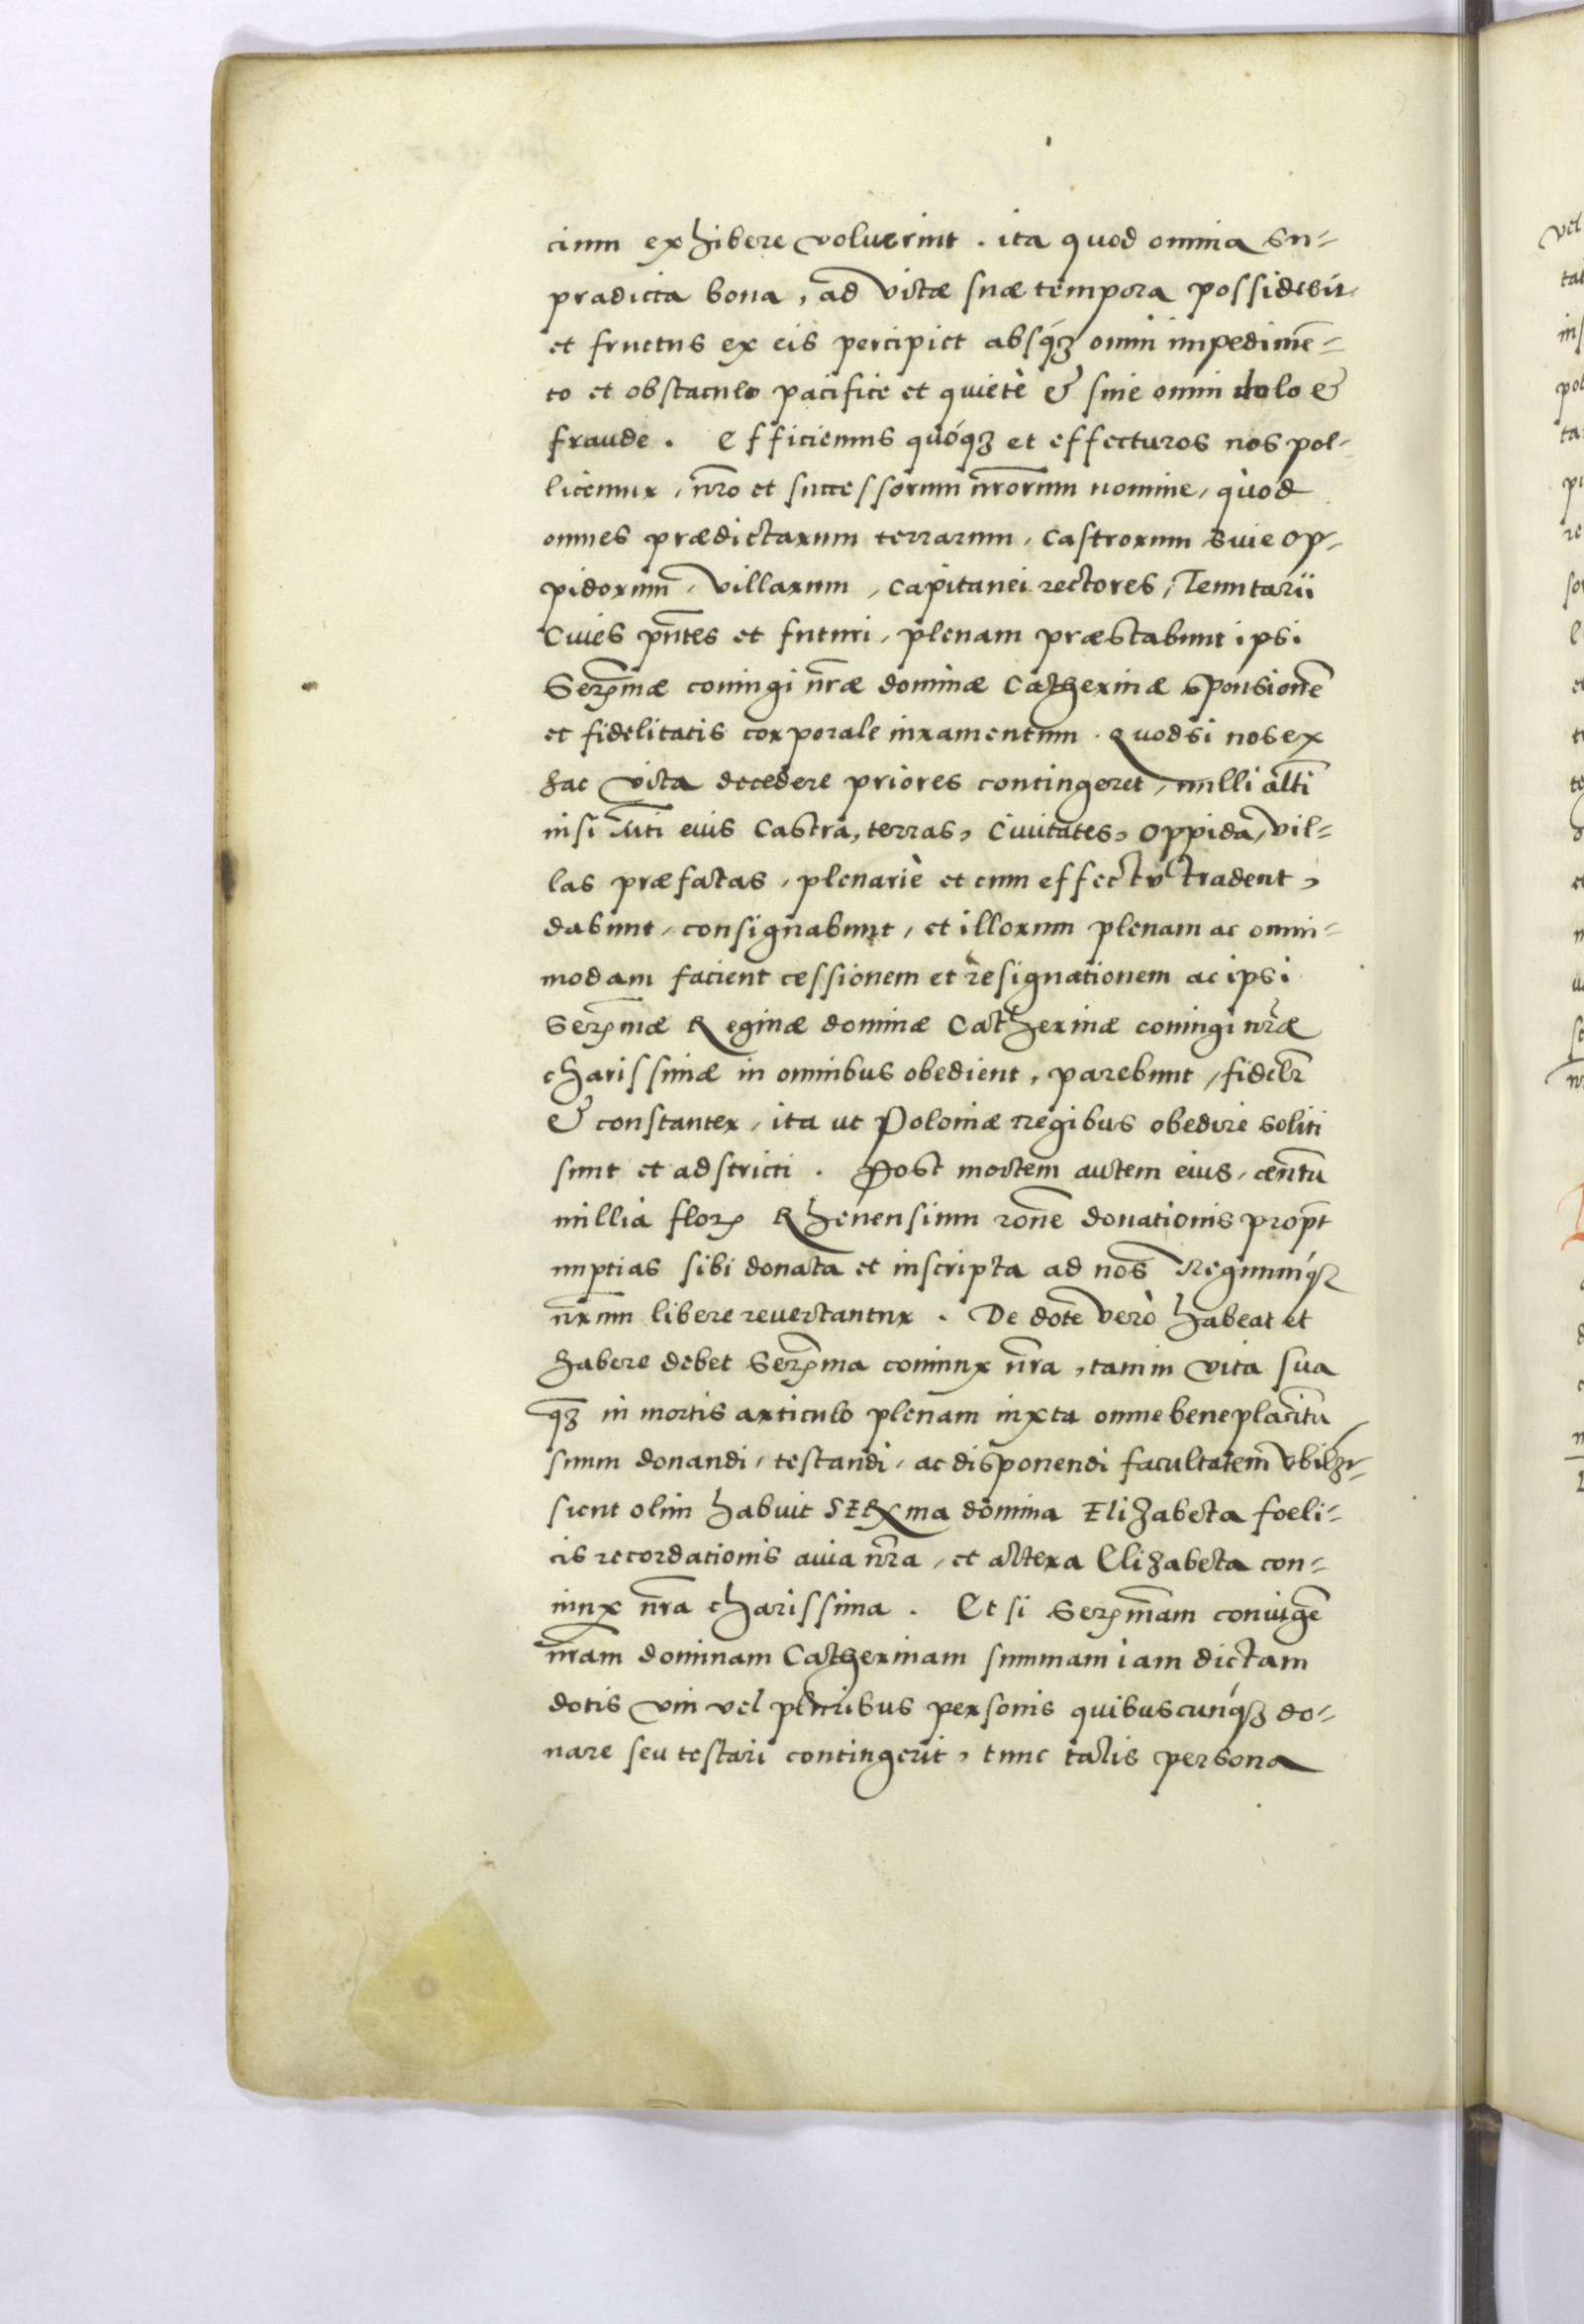 cium exhibere voluerint . ita quod omnia su-
pradicta bona, ad vitæ suæ tempora possidebit
et fructus ex eis percipiet absq́ꝫ omni impedimē-
to et obstaculo pacifice et quietè & sine omni dolo &
fraude . Efficiemus quóqꝫ et effecturos nos pol-
licemur, nr̄o et successorum nr̄orum nomine, quòd
omnes prædictarum terrarum, Castrorum Siue Op-
pidorum, Villarum, Capitanei rectores, Tenutarii
Ciues pn̄tes et futuri, plenam præstabunt ipsi
Serꝫm̄æ coniugi nr̄æ dominæ Catherinæ sponsionē
et fidelitatis corporale iuramentum . Quodsi nos ex
hac vita decedere priores contingeret, nulli alt̄i
nisi Mt̄i eius Castra, terras, Ciuitates, Oppida, Vil-
las præfatas, plenariè et cum effectu tradent,
dabunt, consignabunt, et illorum plenam ac omni-
modam facient cessionem et resignationem ac ipsi
Serꝫm̄æ Reginæ dominæ Catherinæ coniugi nr̄æ
charissimæ in omnibus obedient, parebunt, fidelr̄
& constanter, ita ut Poloniæ regibus obedire soliti
sunt et adstricti . Post mortem autem eius, centū
millia floꝝ Rhenensium rōne donationis propt̄
nuptias sibi donata et inscripta ad nos Regnumq́ꝫ
nr̄um libere reuertantur . De dote verò habeat et
habere debet Serꝫm̄a coniunx nr̄a, tam in vita sua
q̄ꝫ in mortis articulo plenam iuxta omne beneplacitū
suum donandi, testandi, ac disponendi facultatem vbilꝫ-
sicut olim habuit SERꝫma domina Elizabeta foeli-
cis recordationis auia nr̄a, et altera Elizabeta con-
iunx nr̄a charissima . Et si Serꝫm̄am coniugē
nr̄am dominam Catherinam summam iam dictam
dotis vni vel pluribus personis quibuscunq́ꝫ do-
nare seu testari contingerit, tunc talis persona